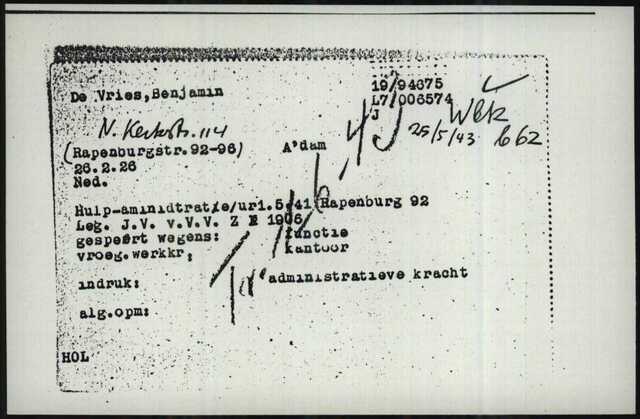 De Vries, Benjamin
19/94675
L7/006574
J
N. Kerkstr. 114
25/5/43
b 62
(Rapenburgstr.92-96) A'dam
26.2.26
Ned.
Hulp-aminidtratie/uri.5.41(Rapenburg 92
Leg. J.V. v.V.V. Z E 1906
gespert wegens: functie
vroeg.werkkr, kantoor
indruk: administratieve kracht
alg.opm:
HOL